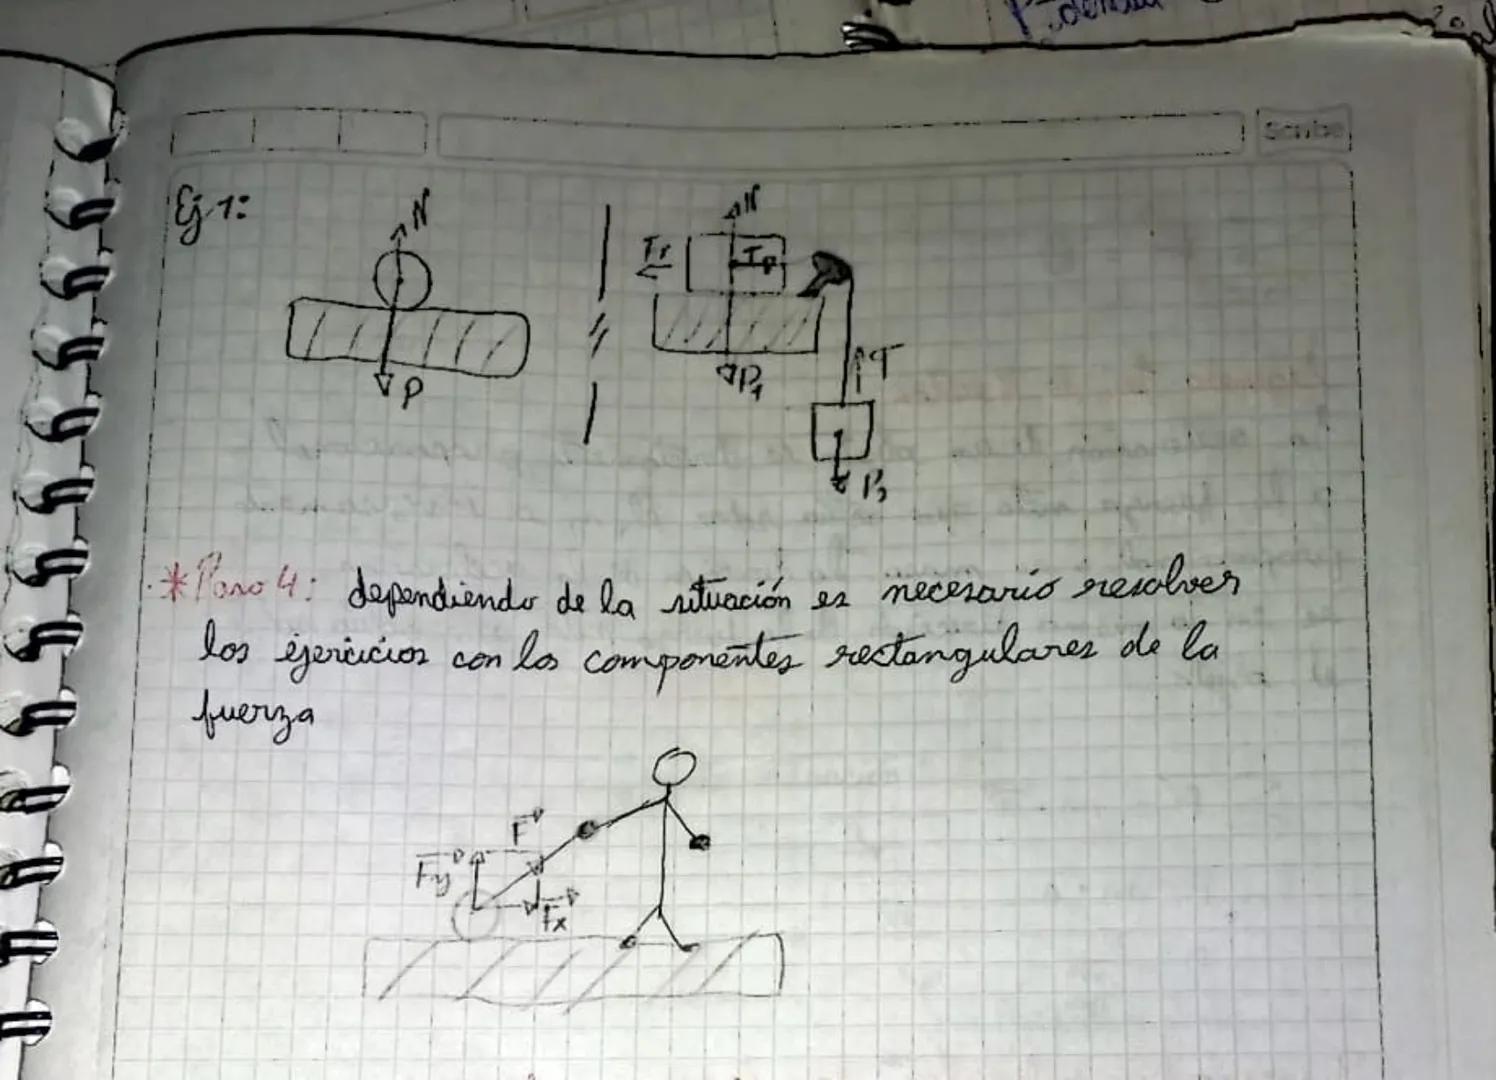 Ej 1:
N
P
N
P1
T
* Paso 4: dependiendo de la situación es necesario resolver
los ejercicios con los componentes rectangulares de la
fuerza
F
Fy
Fx
Scribe